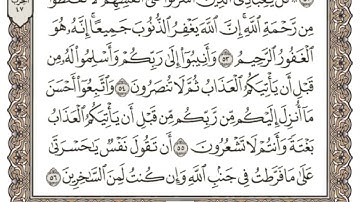 مِن رَّحْمَةِ ٱللَّهِ إِنَّ ٱللَّهَ يَغْفِرُ ٱلذُّنُوبَ جَمِيعًا إِنَّهُۥ هُوَ
ٱلْغَفُورُ ٱلرَّحِيمُ ٥٣ وَأَنِيبُوٓا۟ إِلَىٰ رَبِّكُمْ وَأَسْلِمُوا۟ لَهُۥ مِن
قَبْلِ أَن يَأْتِيَكُمُ ٱلْعَذَابُ ثُمَّ لَا تُنصَرُونَ ٥٤ وَٱتَّبِعُوٓا۟ أَحْسَنَ
مَآ أُنزِلَ إِلَيْكُم مِّن رَّبِّكُم مِّن قَبْلِ أَن يَأْتِيَكُمُ ٱلْعَذَابُ
بَغْتَةً وَأَنتُمْ لَا تَشْعُرُونَ ٥٥ أَن تَقُولَ نَفْسٌ يَـٰحَسْرَتَىٰ
عَلَىٰ مَا فَرَّطتُ فِى جَنۢبِ ٱللَّهِ وَإِن كُنتُ لَمِنَ ٱلسَّـٰخِرِينَ ٥٦